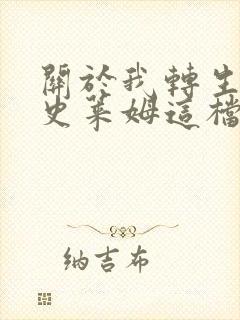 關於我轉生
史萊姆這檔
納吉布